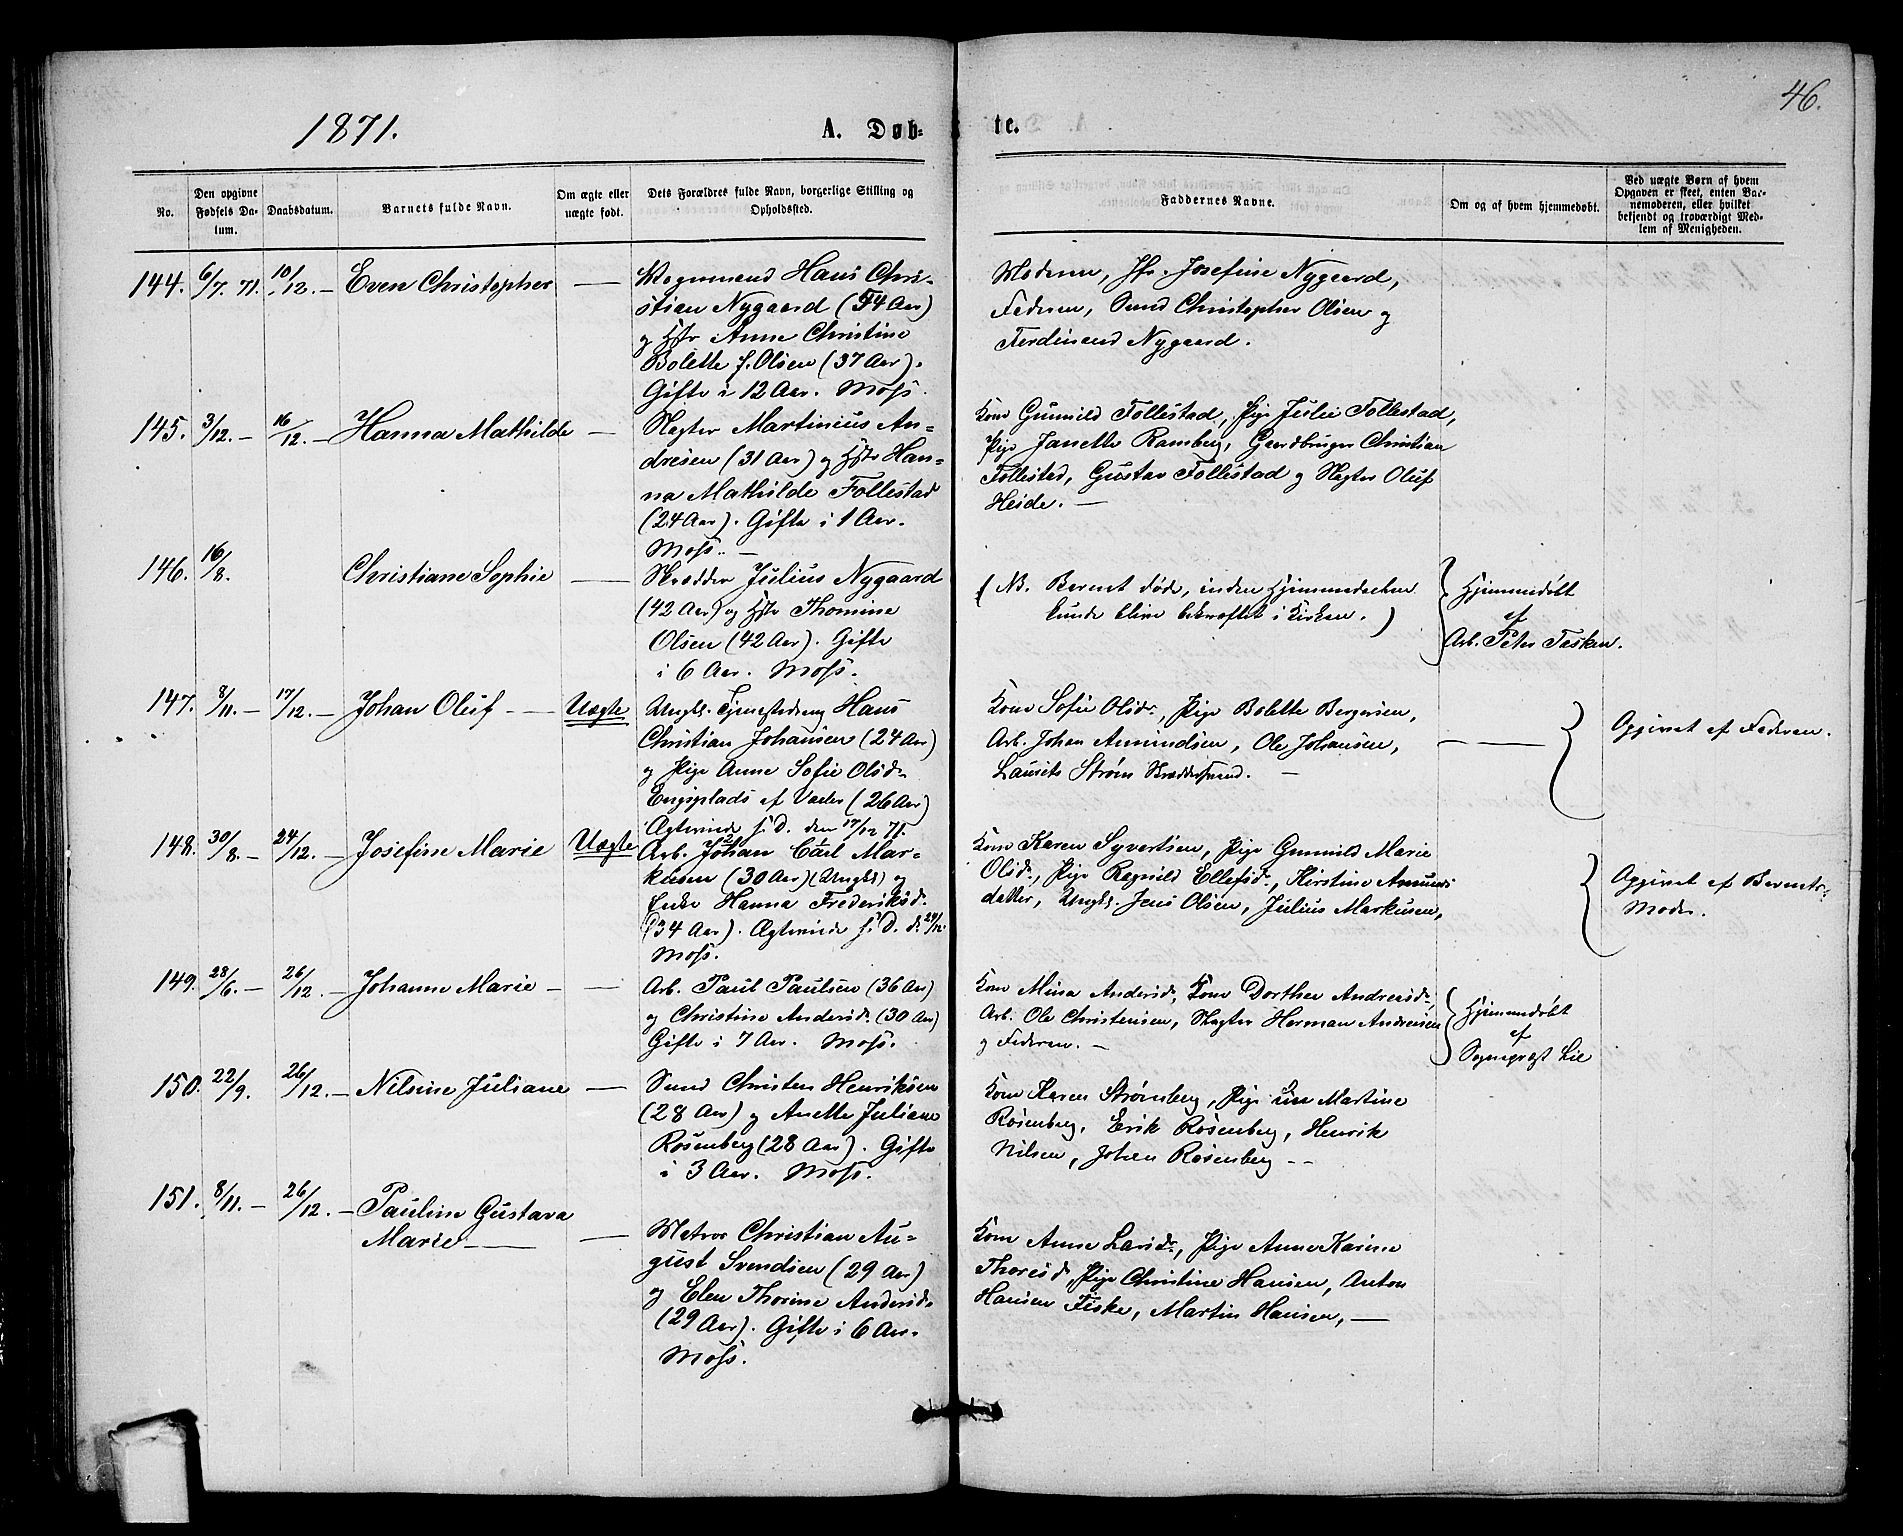 46.
1871.
A. Døb-
te.
No.
Den opgivne Fødsels Da-
tum.
Daabsdatum.
Barnets fulde Navn.
Om ægte eller uægte født.
Dets Forældres fulde Navn, borgerlige Stilling og Opholdssted.
Faddernes Navne.
Om og af hvem hjemmedøbt.
Ved uægte Børn af hvem
Opgaven er skeet, enten Bar-
nemoderen, eller hvilket
bekjendt og troværdigt Med-
lem af Menigheden.
144. 6/7. 71. 10/12. — Even Christopher —
Vognmand Hans Chri-
stian Nygaard (54 Aar)
og Hstr Anne Christine
Bolette f. Olsen (37 Aar).
Gifte i 12 Aar. Moss.
Moderen, Jfr. Josefine Nygaard,
Faderen, Sømd Christopher Olsen og
Ferdinand Nygaard.
145. 3/12. — 16/12. — Hanna Mathilde —
Slagter Martinius An-
dresen (31 Aar) og Hstr Han-
na Mathilde Follestad
(24 Aar). Gifte i 1 Aar.
Moss. —
Kone Gunnild Follestad, Pige Julie Follestad,
Pige Janette Ramberg, Gaardbruger Christian
Follestad, Gustav Follestad og Slagter Oluf
Heide. —
146. 16/8. Christiane Sophie —
Skrædder Julius Nygaard
(42 Aar) og Hstr Thomine
Olsen (42 Aar). Gifte
i 6 Aar. Moss.
(NB. Barnet døde, inden Hjemmedaaben
kunde blive bekræftet i Kirken.)
Hjemmedøbt
af
Arb. Peter Fasken.
147. 8/11. — 17/12. — Johan Oluf — Uægte
Ungk. Tjenestedreng Hans
Christian Johansen (24 Aar)
og Pige Anne Sofie Olsdr
Engsplads af Vaaler (26 Aar)
Ægteviede s. D. den 17/12 71.
Kone Sofie Olsdr., Pige Bolette Bergersen,
Arb. Johan Amundsen, Ole Johansen,
Laurits Strøm Skræddersvend. —
Opgivet af Faderen.
148. 30/8. — 24/12. — Josefine Marie Uægte
Arb. Johan Carl Mar-
kusen (30 Aar) (Ungk.) og
Enke Hanna Frederiksd.
(34 Aar). Ægteviede s. D. d. 24/12
Moss.
Kone Karen Syvertsen, Pige Gunnild Marie
Olsdr., Pige Ragnild Ellefsdr., Kirstine Amunds-
datter, Ungk. Jens Olsen, Julius Markusen,
Opgivet af Barnets
Moder.
149. 28/6. — 26/12. — Johanne Marie — —
Arb. Paul Paulsen (36 Aar)
og Christine Andersd. (30 Aar)
Gifte i 7 Aar. Moss.
Kone Mina Andersd., Kone Dorthea Andreasd.,
Arb. Ole Christensen, Slagter Herman Andresen
og Faderen. —
Hjemmedøbt
af
Sognepræst Lie
150. 22/9. 26/12. — Nilsine Juliane —
Sømd Christen Henriksen
(28 Aar) og Anette Juliane
Rosenberg (28 Aar). Gifte
i 3 Aar. Moss.
Kone Karen Strømberg, Pige Martine
Rosenberg, Erik Rosenberg, Henrik
Nilsen, Johan Rosenberg — —
151. 8/11. — 26/12. — Pauline Gustava
Marie — —
Matros Christian Au-
gust Svendsen (29 Aar)
og Elen Thorine Andersdr
(29 Aar). Gifte i 6 Aar.
Moss.
Kone Anne Larsdr, Pige Anne Karine
Thoresd., Pige Christine Hansen, Anton
Hansen Fiske, Martin Hansen, —